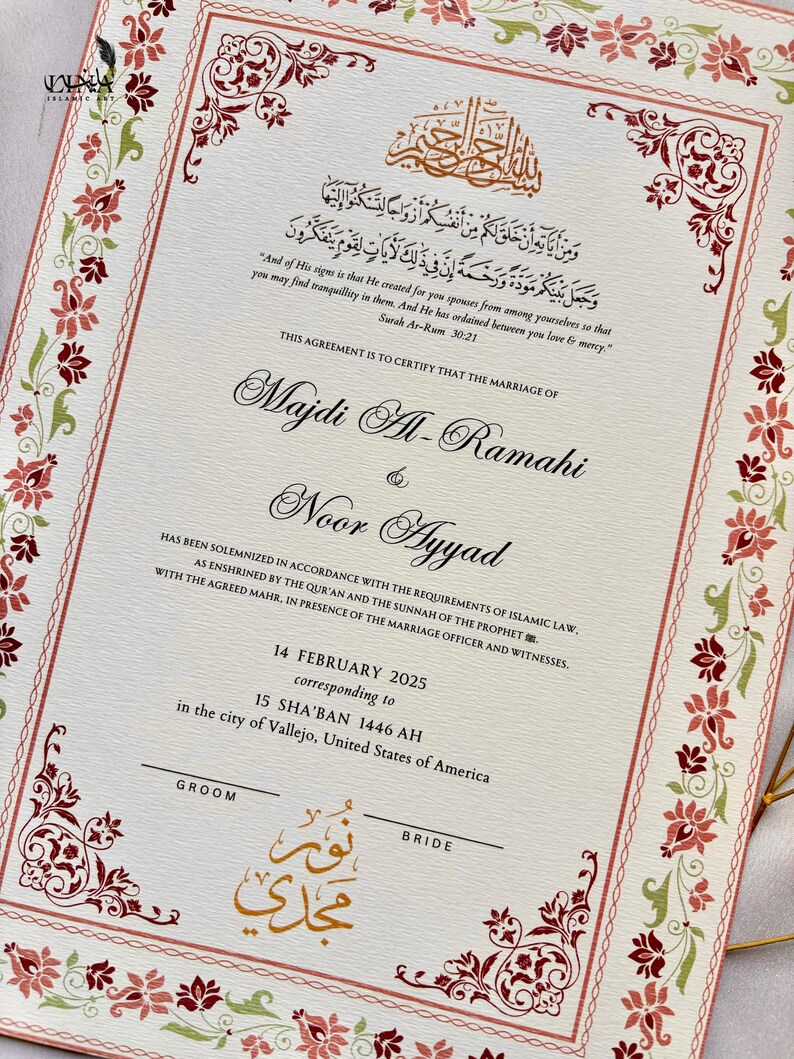 ISLAMIC ART
بسم الله الرحمن الرحيم
وَمِنْ أَيَاتِهِ أَنْ خَلَقَ لَكُمْ مِنْ أَنْفُسِكُمْ أَزْوَاجًا لِتَسْكُنُوا إِلَيْهَا
وَجَعَلَ بَيْنَكُمْ مَوَدَّةً وَرَحْمَةً إِنَّ فِي ذَٰلِكَ لَأَيَاتٍ لِقَوْمٍ يَتَفَكَّرُونَ
“And of His signs is that He created for you spouses from among yourselves so that
you may find tranquillity in them. And He has ordained between you love & mercy.”
Surah Ar-Rum 30:21
THIS AGREEMENT IS TO CERTIFY THAT THE MARRIAGE OF
Majdi Al-Ramahi
&
Noor Ayyad
HAS BEEN SOLEMNIZED IN ACCORDANCE WITH THE REQUIREMENTS OF ISLAMIC LAW,
AS ENSHRINED BY THE QUR'AN AND THE SUNNAH OF THE PROPHET ﷺ.
WITH THE AGREED MAHR, IN PRESENCE OF THE MARRIAGE OFFICER AND WITNESSES.
14 FEBRUARY 2025
corresponding to
15 SHA'BAN 1446 AH
in the city of Vallejo, United States of America
GROOM
BRIDE
نُور
مَجْدِي